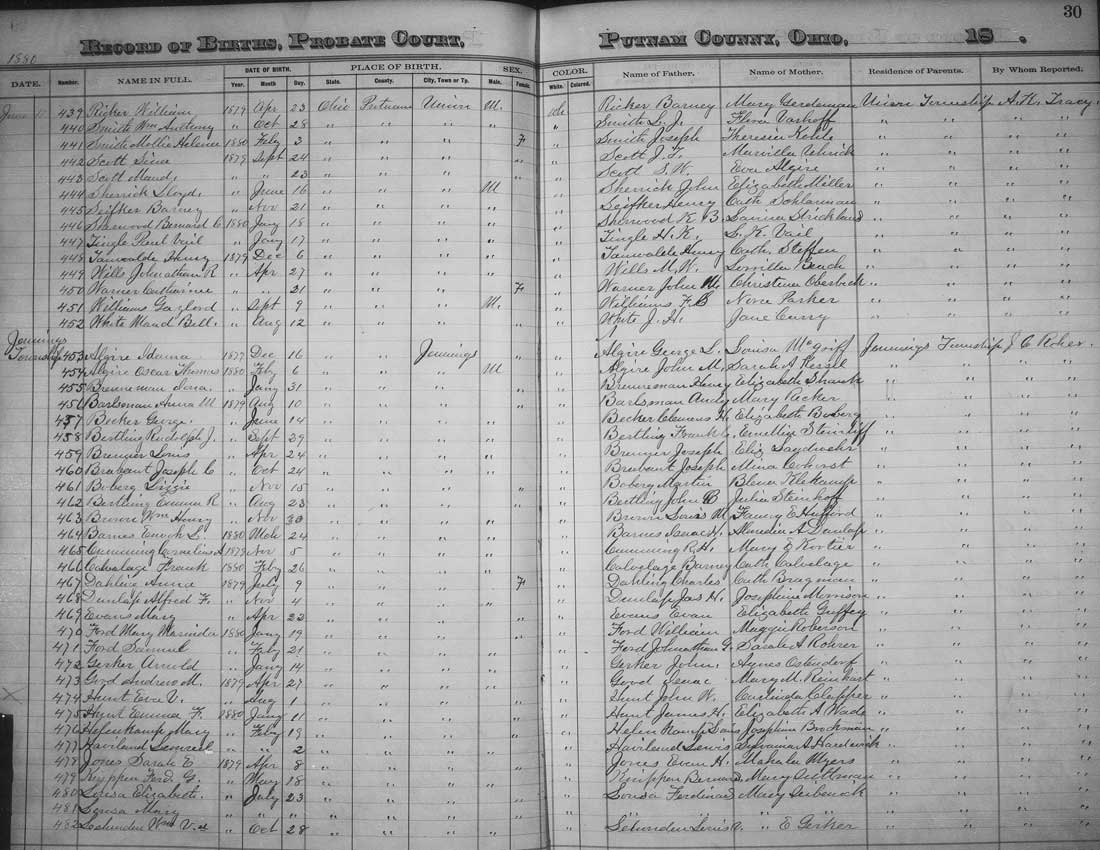 30
RECORD OF BIRTHS, PROBATE COURT, PUTNAM COUNNY, OHIO, 18 .
1880
DATE. Number. NAME IN FULL. DATE OF BIRTH. PLACE OF BIRTH. SEX. COLOR. Name of Father. Name of Mother. Residence of Parents. By Whom Reported.
Year. Month Day. State. County. City, Town or Tp. Male. Female. White. Colored.
June 439 Ricker William 1879 Apr 23 Ohio Putnam Union M. Ricker Barney Mary Union Township A. H. Tracy
440 Smith Wm Anthony " Oct 28 " " " " " Smith L. J. Flora " " "
441 Smith Mollie Helena 1880 Feby 3 " " " F " Smith Joseph Theresia " " "
442 Scott 1879 Sept 24 " " " " " Scott J. F. Marilla " " "
443 Scott Maud, " " 23 " " " " " Scott S. W. Eva Algire " " "
444 Sherrick Lloyd, " June 16 " " " M " Sherrick John Elizabeth Miller " " "
445 Seifker Barney " Nov 21 " " " " " Seifker Henry Cath " " "
446 Sherwood Bernard C 1880 Jany 18 " " " " " Sherwood K. B. Savina Strickland " " "
447 Tingle Paul Vail " Jany 17 " " " " " Tingle H. K. S. K. Vail " " "
448 Henry 1879 Dec 6 " " " " " Henry Cath. Steffen " " "
449 Wills Johnathan R " Apr 27 " " " " " Wills M. W. Beach " " "
450 Warner Catharine " " 21 " " " F " Warner John W. Christina " " "
451 Williams Gaylord " Sept 9 " " " M. " Williams F. B Nora Parker " " "
452 White Maud Bell. " Aug 12 " " " " " White J. H. Jane Curry " " "
Jennings
Township 453 Algire Idonna 1879 Dec 16 " " Jennings " " Algire George L. Louisa McGriff Jennings Township J. C. Roher
454 Algire Oscar Thomas 1880 Feby 6 " " " M " Algire John M. Sarah A Kessel " " "
455 Breneman " Jany 31 " " " " " Brenneman Henry Elizabeth Shank " " "
456 Anna M 1879 Aug 10 " " " " " Andy Mary Ricker " " "
457 Becker George " June 14 " " " " " Becker Clemens H. Elizabeth Boberg " " "
458 Bertling Rudolph J. " Sept 29 " " " " " Bertling Frank C. " " "
459 Louis " Apr 24 " " " " " Joseph Eliz " " "
460 Brabant Joseph C " Oct 24 " " " " " Brabant Joseph Mina " " "
461 Boberg Lizzie " Nov 15 " " " " " Boberg Martin Klekamp " " "
462 Bertling Emma R " Aug 23 " " " " " Bertling John B Julia Steinhoff " " "
463 Brown Wm Henry " Nov 30 " " " " " Brown Louis W Fanny E Hufford " " "
464 Barnes Enoch L. 1880 Mch 24 " " " " " Barnes Isaac N. A Dunlap " " "
465 Cumming Cornelius A 1879 Nov 5 " " " " " Cumming R. H. Mary E " " "
466 Calvelage Frank 1880 Feby 26 " " " " " Calvelage Barney Cath Calvelage " " "
467 Dahling Anna 1879 July 9 " " " F " Dahling Charles Cath " " "
468 Dunlap Alfred F. " Nov 4 " " " " " Dunlap Jas H. Josephine Morrison " " "
469 Evans Mary " Apr 23 " " " " " Evans Evan Elizabeth Guffey " " "
470 Ford Mary Marinda 1880 Jany 19 " " " " " Ford William Maggie Roberson " " "
471 Ford Samuel " Feby 21 " " " " " Ford Johnathan G. Sarah A Rohrer " " "
472 Gerker Arnold " Jany 14 " " " " " Gerker John. Agnes Ostendorf " " "
473 Good Andrew M. 1879 Apr 27 " " " " " Good Isaac Mary M. Reinhart " " "
474 Hunt Eva V. " Aug 1 " " " " " Hunt John W. Clapper " " "
475 Hunt Emma F. 1880 Jany 11 " " " " " Hunt James H. Elizabeth A Wade " " "
476 Helenkamp Mary " Feby 19 " " " " " Josephine Brockman " " "
477 Haviland Samuel " " 2 " " " " " Haviland Lewis Sylvania A " " "
478 Jones Sarah E 1879 Apr 8 " " " " " Jones Evan H. Mahala Myers " " "
479 Knippen Ferd G. " May 18 " " " " " Knippen Bernard. Mary " " "
480 Elizabeth. " July 23 " " " " " Ferdinand Mary " " "
481 Mary " " " " " " " " " "
482 Wm V. " Oct 28 " " " " " Louis " E Gerker " " "